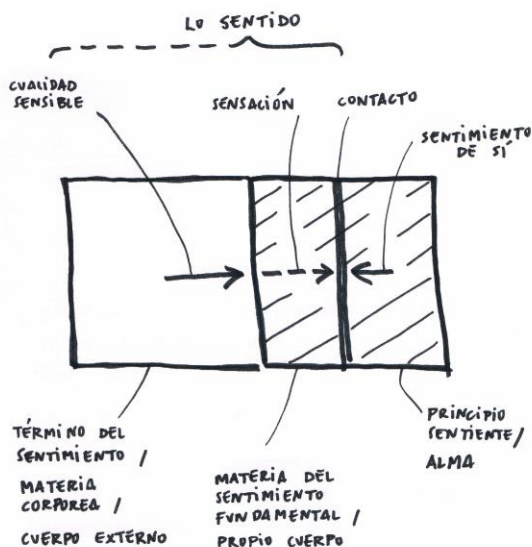 LO SENTIDO
CUALIDAD
SENSIBLE
SENSACIÓN
CONTACTO
SENTIMIENTO
DE SÍ
TÉRMINO DEL
SENTIMIENTO /
MATERIA
CORPOREA /
CUERPO EXTERNO
MATERIA DEL
SENTIMIENTO
FUNDAMENTAL /
PROPIO CUERPO
PRINCIPIO
SENTIENTE /
ALMA